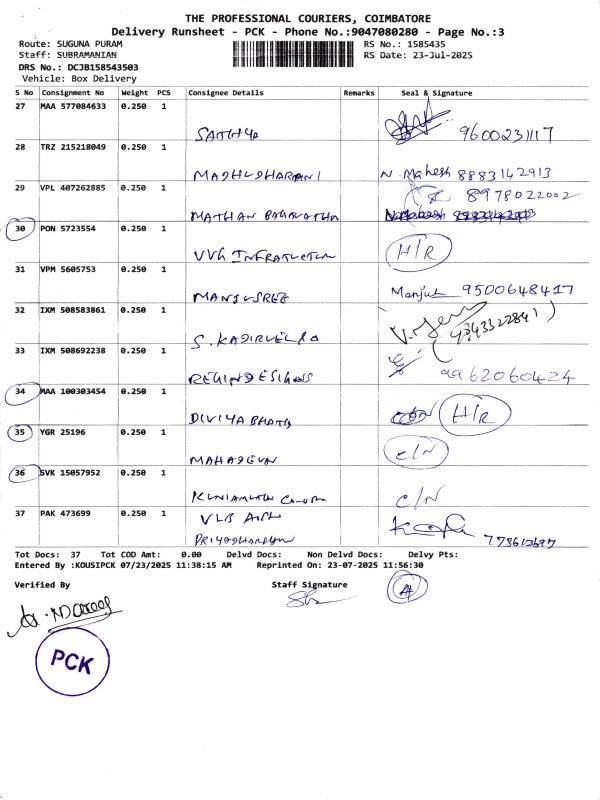 THE PROFESSIONAL COURIERS, COIMBATORE
Delivery Runsheet - PCK - Phone No.:9047080280 - Page No.:3
Route: SUGUNA PURAM RS No.: 1585435
Staff: SUBRAMANIAN RS Date: 23-Jul-2025
DRS No.: DCJB158543503
Vehicle: Box Delivery
S No Consignment No Weight PCS Consignee Details Remarks Seal & Signature
27 MAA 577084633 0.250 1
SATHYA 9600231117
28 TRZ 215218049 0.250 1
MADHUDHARANI N. Mahesh 8883142913
29 VPL 407262885 0.250 1 8978022002
MATHAN
30 PON 5723554 0.250 1
VVG H/R
31 VPM 5605753 0.250 1
MANJUSREE Manjul 9500648417
32 IXM 508583861 0.250 1
S. KADIRVEL
33 IXM 508692238 0.250 1
9962060424
34 MAA 100303454 0.250 1
DIVIYA H/R
35 YGR 25196 0.250 1
MAHADEVAN C/N
36 SVK 15057952 0.250 1
C/N
37 PAK 473699 0.250 1 VLB
PRIYADHARSHAN
Tot Docs: 37 Tot COD Amt: 0.00 Delvd Docs: Non Delvd Docs: Delvy Pts:
Entered By :KOUSIPCK 07/23/2025 11:38:15 AM Reprinted On: 23-07-2025 11:56:30
Verified By Staff Signature
PCK